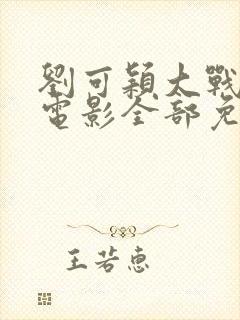 劉可穎大戰
電影全部免
王若惠